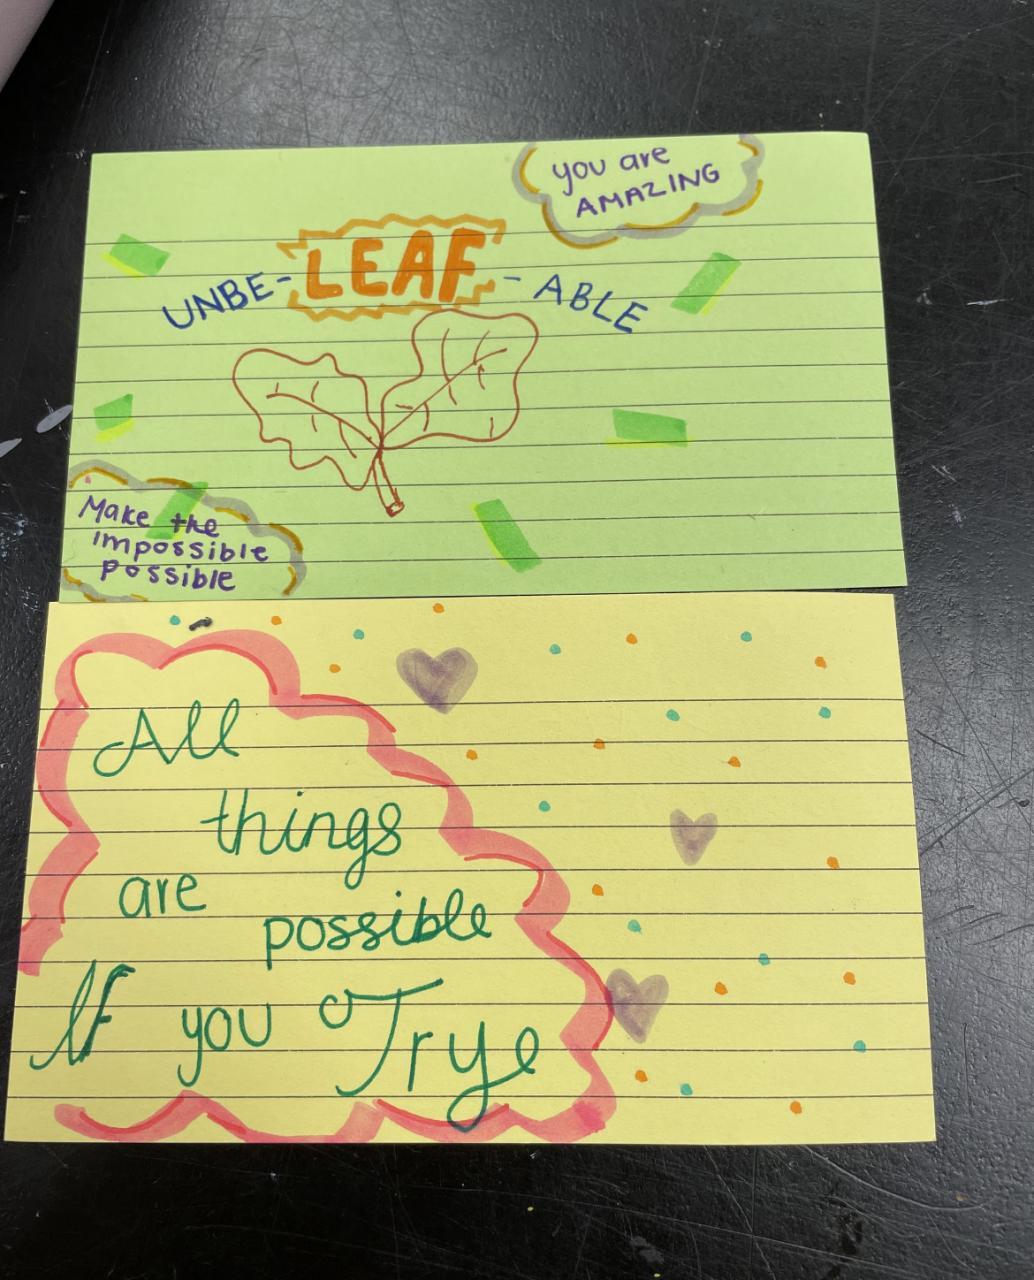 you are
AMAZING
UNBE-LEAF-ABLE
Make the
impossible
possible
All
things
are
possible
If you Try